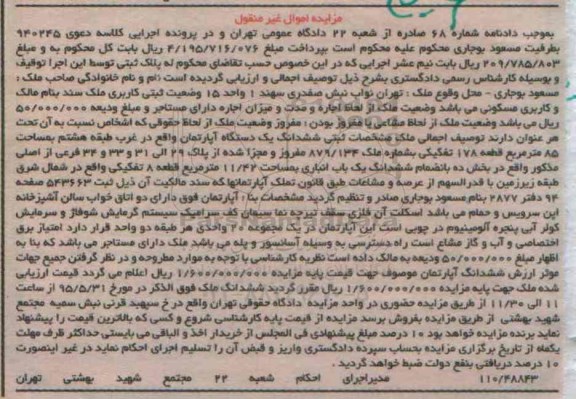 مزایده اموال غیر منقول
بموجب دادنامه شماره ۶۸ صادره از شعبه ۲۲ دادگاه عمومی تهران و در پرونده اجرایی کلاسه دعوی ۹۴۰۲۴۵
بطرفیت مسعود بوجاری محکوم علیه محکوم است بپرداخت مبلغ ۴/۱۹۵/۷۱۶/۰۷۶ ریال بابت کل محکوم به و مبلغ
۲۰۹/۷۸۵/۸۰۳ ریال بابت نیم عشر اجرایی که در این خصوص حسب تقاضای محکوم له پلاک ثبتی توسط این اجرا توقیف
و بوسیله کارشناس رسمی دادگستری بشرح ذیل توصیف اجمالی و ارزیابی گردیده است نام و نام خانوادگی صاحب ملک :
مسعود بوجاری - محل وقوع ملک : تهران نواب نبش صفدری سهند ۱ واحد ۱۵ وضعیت ثبتی کاربری ملک سند بنام مالک
و کاربری مسکونی می باشد وضعیت ملک از لحاظ اجاره و مدت و میزان اجاره دارای مستاجر و مبلغ ودیعه ۵۰/۰۰۰/۰۰۰
ریال می باشد وضعیت ملک از لحاظ مشاعی یا مفروز بودن : مفروز وضعیت ملک از لحاظ حقوقی که اشخاص نسبت به آن تحت
هر عنوان دارند توصیف اجمالی ملک مشخصات ثبتی ششدانگ یک دستگاه آپارتمان واقع در غرب طبقه هشتم بمساحت
۸۵ مترمربع قطعه ۱۷۸ تفکیکی بشماره ملک ۸۷۹/۱۳۴ مفروز و مجزا شده از پلاک ۲۹ الی ۳۱ و ۳۳ و ۳۴ فرعی از اصلی
مذکور واقع در بخش ده بانضمام ششدانگ یک باب انباری بمساحت ۱۱/۴۲ مترمربع قطعه ۸ تفکیکی واقع در شمال شرق
طبقه زیرزمین با قدرالسهم از عرصه و مشاعات طبق قانون تملک آپارتمانها که سند مالکیت آن ذیل ثبت ۵۴۳۶۶۳ صفحه
۹۴ دفتر ۲۸۷۷ بنام مسعود بوجاری صادر و تنظیم گردید مشخصات بنا : آپارتمان فوق دارای دو اتاق خواب سالن آشپزخانه
اپن سرویس و حمام می باشد اسکلت آن فلزی سقف تیرچه نما سیمان کف سرامیک سیستم گرمایش شوفاژ و سرمایش
کولر آبی پنجره آلومینیوم در چوبی است این آپارتمان در یک مجموعه ۲۰ واحدی هر طبقه دو واحد قرار دارد امتیاز برق
اختصاصی و آب و گاز مشاع است راه دسترسی به وسیله آسانسور و پله می باشد ملک دارای مستاجر می باشد که بنا به
اظهار مبلغ ۵۰/۰۰۰/۰۰۰ ودیعه به مالک داده است نظریه کارشناسی با توجه به موارد مطروحه و در نظر گرفتن جمیع جهات
موثر ارزش ششدانگ آپارتمان موصوف جهت قیمت پایه مزایده ۱/۶۰۰/۰۰۰/۰۰۰ ریال اعلام می گردد قیمت ارزیابی
شده ملک جهت پایه مزایده ۱/۶۰۰/۰۰۰/۰۰۰ ریال مقرر گردید ششدانگ ملک فوق الذکر در مورخ ۹۵/۵/۳۱ از ساعت
۱۱ الی ۱۱/۳۰ از طریق مزایده حضوری در واحد مزایده دادگاه حقوقی تهران واقع در خ سپهبد قرنی نبش سمیه مجتمع
شهید بهشتی از طریق مزایده بفروش برسد مزایده از قیمت پایه کارشناسی شروع و کسی که بالاترین قیمت را پیشنهاد
نماید برنده مزایده خواهد بود ۱۰ درصد مبلغ پیشنهادی فی المجلس از خریدار اخذ و الباقی می بایستی حداکثر ظرف مهلت
یکماه از تاریخ برگزاری مزایده بحساب سپرده دادگستری واریز و قبض آن را تسلیم اجرای احکام نماید در غیر اینصورت
۱۰ درصد دریافتی بنفع دولت ضبط خواهد گردید .
۱۱۰/۴۸۸۴۳ مدیراجرای احکام شعبه ۲۲ مجتمع شهید بهشتی تهران